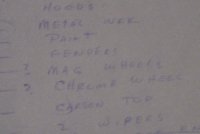 HOODS
METAL WRK
PAINT
FENDERS
? MAG WHEELS
? CHROME WHEEL
CARSON TOP
2 WIPERS